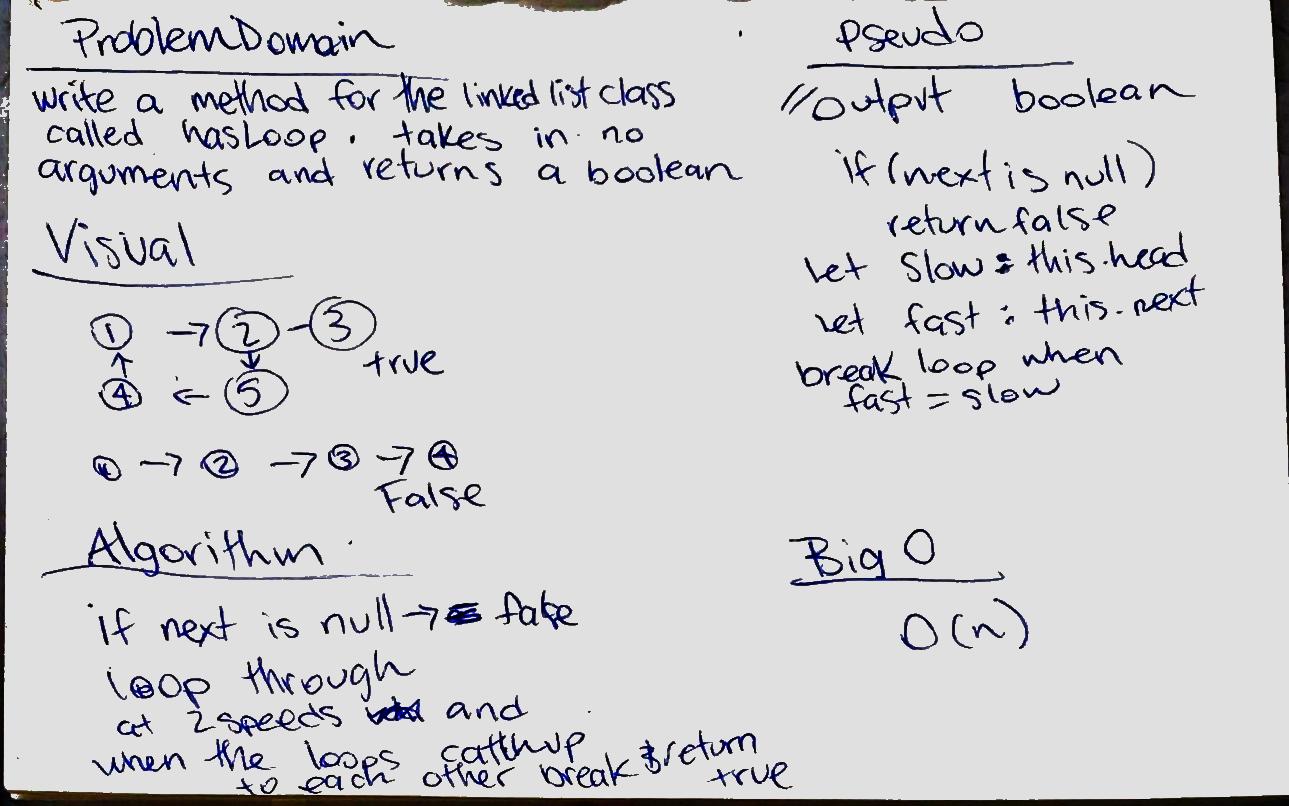 Problem Domain
write a method for the linked list class
called hasLoop. takes in no
arguments and returns a boolean
Visual
1 → 2 - 3
true
↑ ↓
4 ← 5
1 → 2 → 3 → 4
False
Algorithm
if next is null → false
loop through
at 2 speeds and
when the loops catch up
to each other break & return
true
Pseudo
//output boolean
if (next is null)
return false
Let slow = this.head
Let fast = this.next
break loop when
fast = slow
Big O
O(n)